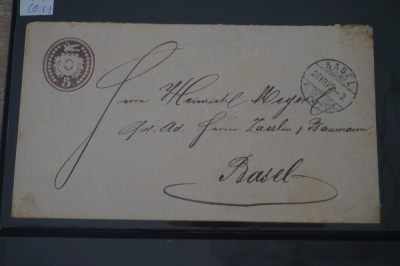 5
BASEL
Herrn Heinrich Meyer
Ad. Herrn Zaeslin & Baumann
Basel